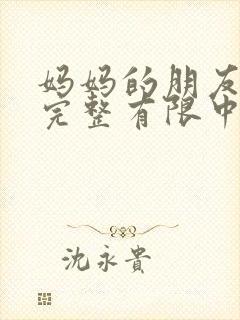 妈妈的朋友
完整有限中
沈永貴